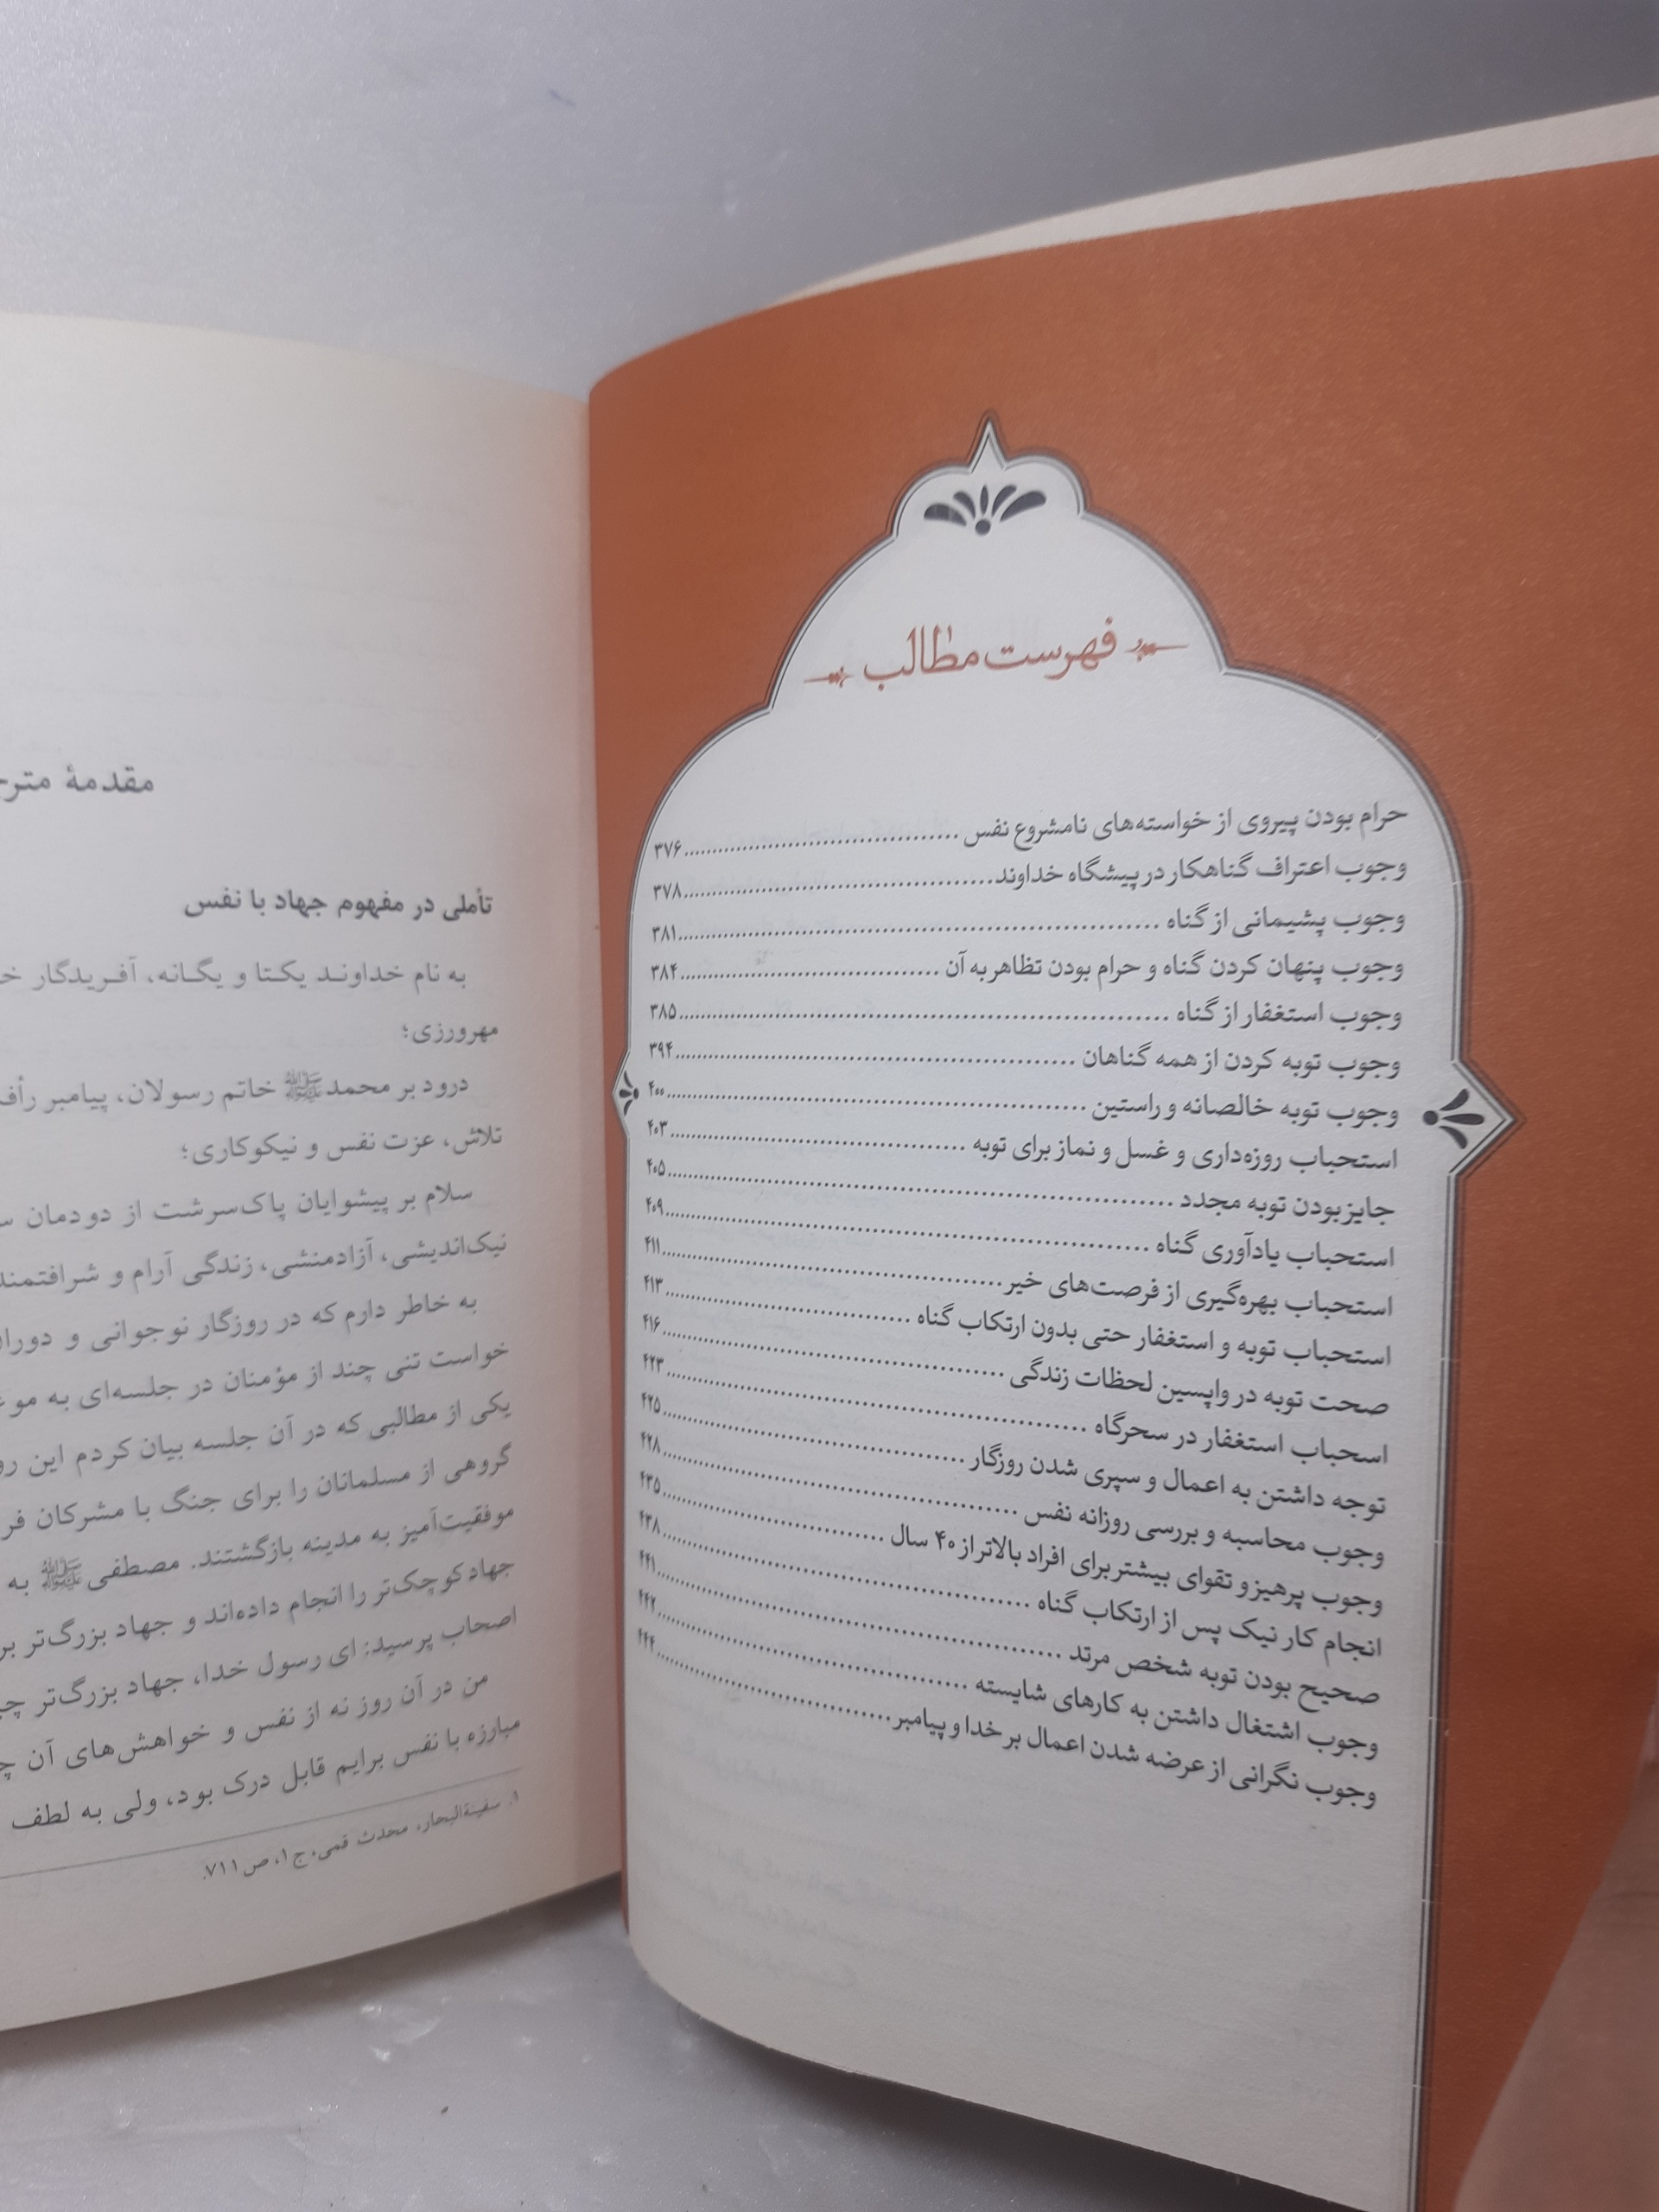 فهرست مطالب
حرام بودن پیروی از خواسته‌های نامشروع نفس ........ ۳۷۶
وجوب اعتراف گناهکار در پیشگاه خداوند ........ ۳۷۸
وجوب پشیمانی از گناه ........ ۳۸۱
وجوب پنهان کردن گناه و حرام بودن تظاهر به آن ........ ۳۸۴
وجوب استغفار از گناه ........ ۳۸۵
وجوب توبه کردن از همه گناهان ........ ۳۹۴
وجوب توبه خالصانه و راستین ........ ۴۰۰
استحباب روزه‌داری و غسل و نماز برای توبه ........ ۴۰۳
جایز بودن توبه مجدد ........ ۴۰۵
استحباب یادآوری گناه ........ ۴۰۹
استحباب بهره‌گیری از فرصت‌های خیر ........ ۴۱۱
استحباب توبه و استغفار حتی بدون ارتکاب گناه ........ ۴۱۳
صحت توبه در واپسین لحظات زندگی ........ ۴۱۶
اسحباب استغفار در سحرگاه ........ ۴۲۳
توجه داشتن به اعمال و سپری شدن روزگار ........ ۴۲۵
وجوب محاسبه و بررسی روزانه نفس ........ ۴۲۸
وجوب پرهیز و تقوای بیشتر برای افراد بالاتر از ۴۰ سال ........ ۴۳۵
انجام کار نیک پس از ارتکاب گناه ........ ۴۳۸
صحیح بودن توبه شخص مرتد ........ ۴۴۱
وجوب اشتغال داشتن به کارهای شایسته ........ ۴۴۲
وجوب نگرانی از عرضه شدن اعمال بر خدا و پیامبر ........ ۴۴۴
مقدمهٔ
تأملی در مفهوم جهاد با نفس
به نام خداوند یکتا و یگانه، آفریدگار
مهرورزی؛
درود بر محمدﷺ خاتم رسولان، پیامبر
تلاش، عزت نفس و نیکوکاری؛
سلام بر پیشوایان پاک‌سرشت از دودمان
نیک‌اندیشی، آزادمنشی، زندگی آرام و
به خاطر دارم که در روزگار نوجوانی و
خواست تنی چند از مؤمنان در جلسه‌ای به
یکی از مطالبی که در آن جلسه بیان کردم این
گروهی از مسلمانان را برای جنگ با مشرکان
موفقیت‌آمیز به مدینه بازگشتند. مصطفیﷺ به
جهاد کوچک‌تر را انجام داده‌اند و جهاد بزرگ‌تر
اصحاب پرسید: ای رسول خدا، جهاد بزرگ‌تر
من در آن روز نه از نفس و خواهش‌های آن
مبارزه با نفس برایم قابل درک بود، ولی به لطف
۱. سفینةالبحار، محدث قمی، ج۱، ص۷۱۱.